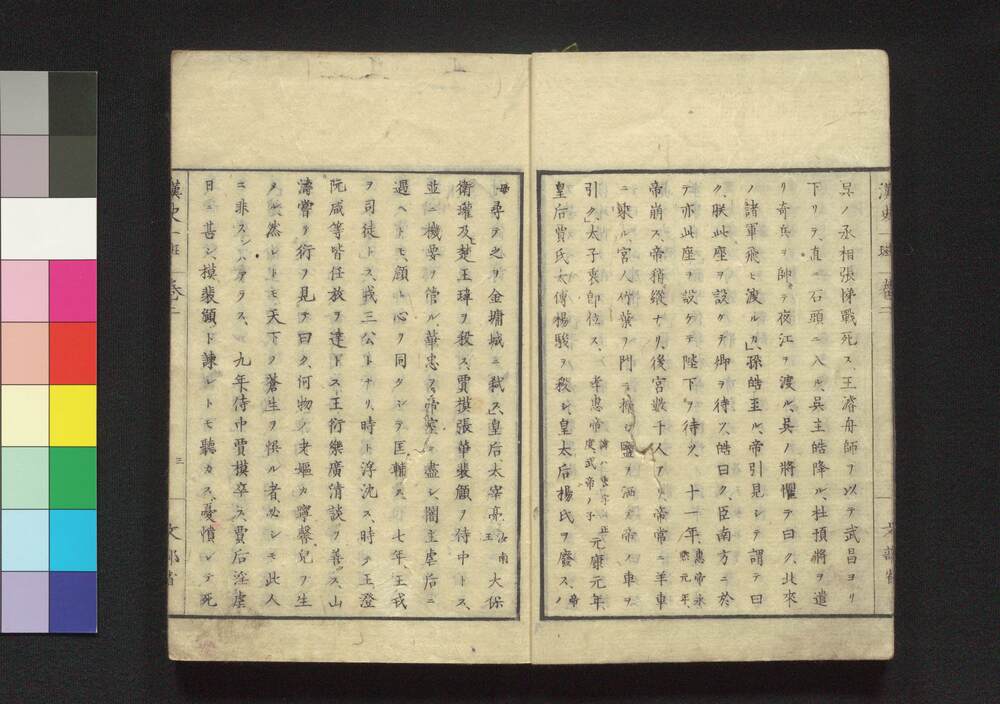 呉ノ丞相張悌戰死ス、王濬舟師ヲ以テ武昌ヨリ
下リテ、直ニ石頭ニ入ル、呉主皓降ル、杜預將ヲ遣
リ奇兵ヲ帥テ夜江ヲ渡ル、呉ノ將懼テ曰ク、北來
ノ諸軍飛ヒ渡ルカ、孫皓至ル、帝引見シテ謂テ曰
ク、朕此座ヲ設ケテ卿ヲ待ス、皓曰ク、臣南方ニ於
テ亦此座ヲ設ケテ陛下ヲ待ス、十一年、惠帝永熙元年、
帝崩ス、帝稍縱ナリ、後宮數千人アリ、帝常ニ羊車
ニ乘ル、宮人竹葉ヲ門ニ挿ミ鹽ヲ洒テ帝ノ車ヲ
引ク、太子衷即位ス、孝惠帝諱ハ衷字ハ正度武帝ノ子元康元年、
皇后賈氏太傅楊駿ヲ殺シ皇太后楊氏ヲ廢ス、帝ノ
母尋テ之ヲ金墉城ニ弑ス、皇后、太宰亮、汝南王大保
衛瓘及楚王瑋ヲ殺ス、賈摸張華裴頠ヲ侍中トス、
並ニ機要ヲ管ル、華忠ヲ帝室ニ盡シ、闇主虐后ニ
遇ヘトモ、頠ト心ヲ同クシテ匡輔ス、七年、王戎
ヲ司徒トス、戎三公トナリ、時ト浮沈ス、時ニ王澄
阮咸等皆任放ヲ達トス、王衍樂廣清談ヲ善ス、山
濤嘗テ衍ヲ見テ曰ク、何物ノ老嫗カ寧馨兒ヲ生
メル、然レトモ、天下ノ蒼生ヲ悞ル者、必シモ此人
ニ非スンハアラス、九年、侍中賈摸卒ス、賈后淫虐
日ニ甚シ、摸裴頠ト諫レトモ聽カス、憂憤シテ死
漢史一班
卷二
三
文部省